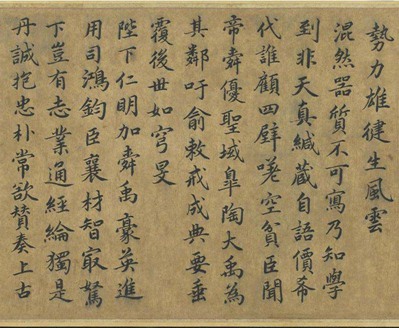 勢力雄健生風雲
混然器質不可寫乃知學
到非天真緘藏自語價莃
代誰顧四壁嘆空貧臣聞
帝舜優聖域皐陶大禹為
其鄰吁俞敕戒成典要垂
覆後世如穹旻
陛下仁明加舜禹豪英進
用司鴻鈞臣襄材智最駑
下豈有志業通經綸獨是
丹誠抱忠朴常欲賛奏上古